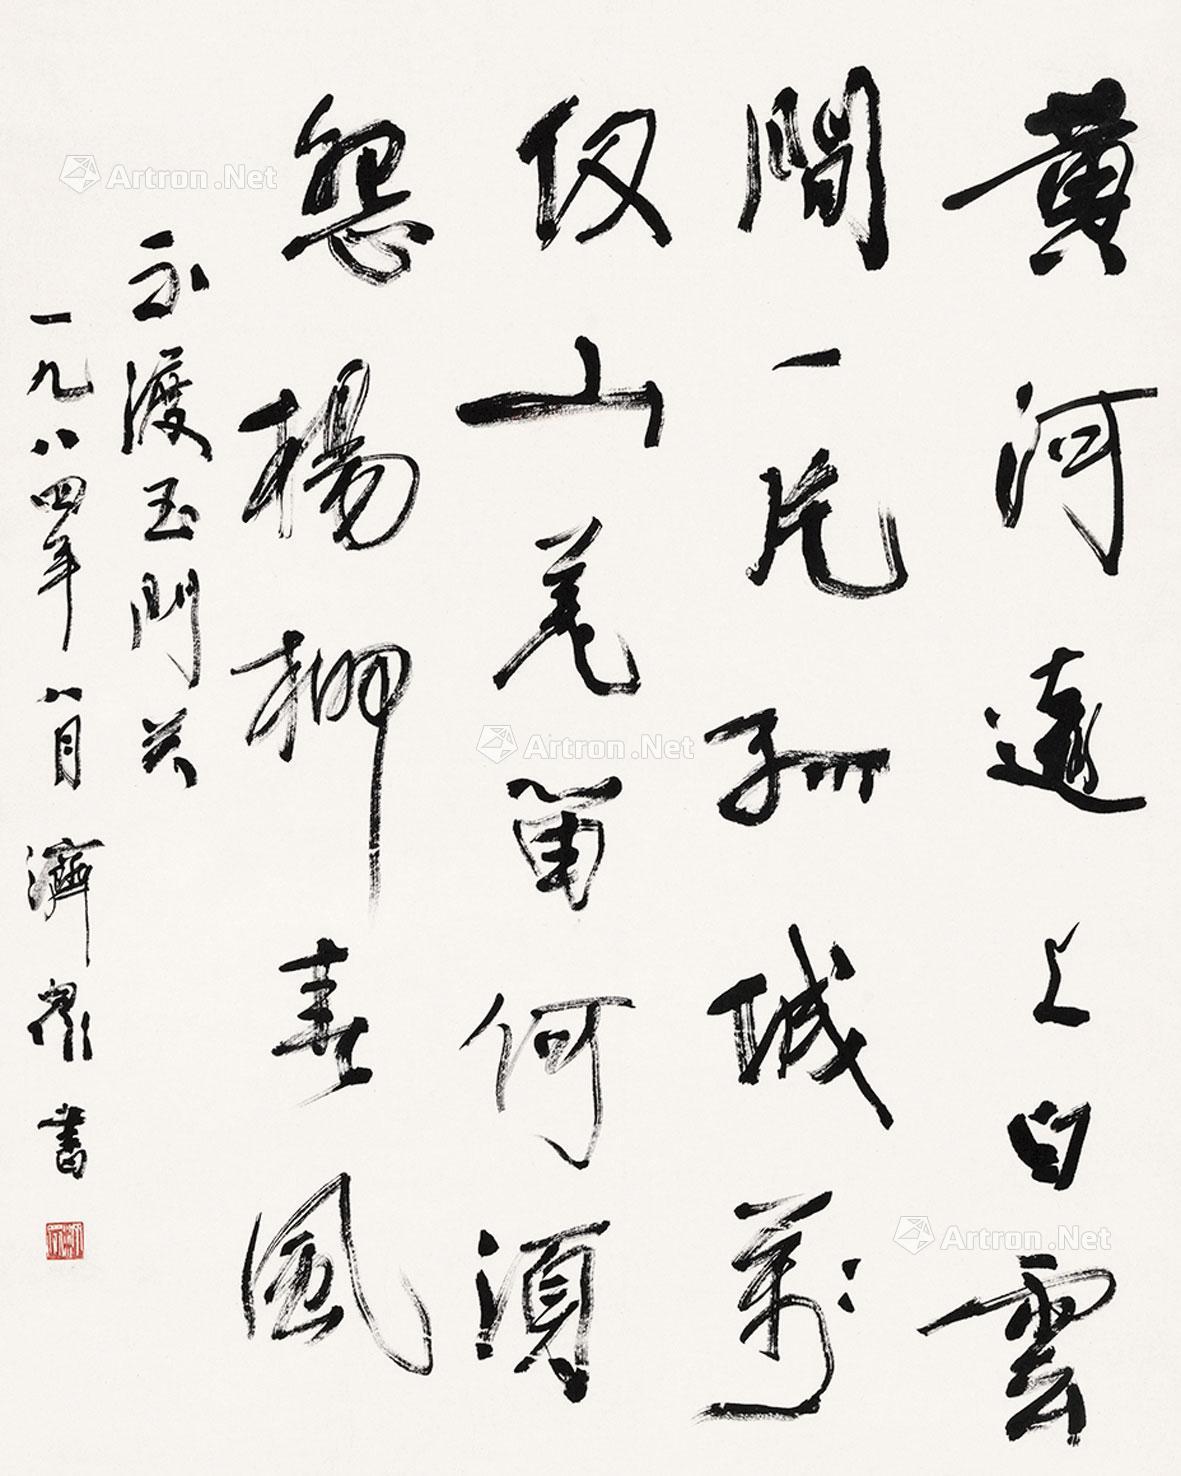 黄河遠上白雲
間一片孤城萬
仞山羌笛何須
怨楊柳春風
不渡玉門关
一九八四年八月 濟眾書
Artron.Net
Artron.Net
Artron.Net